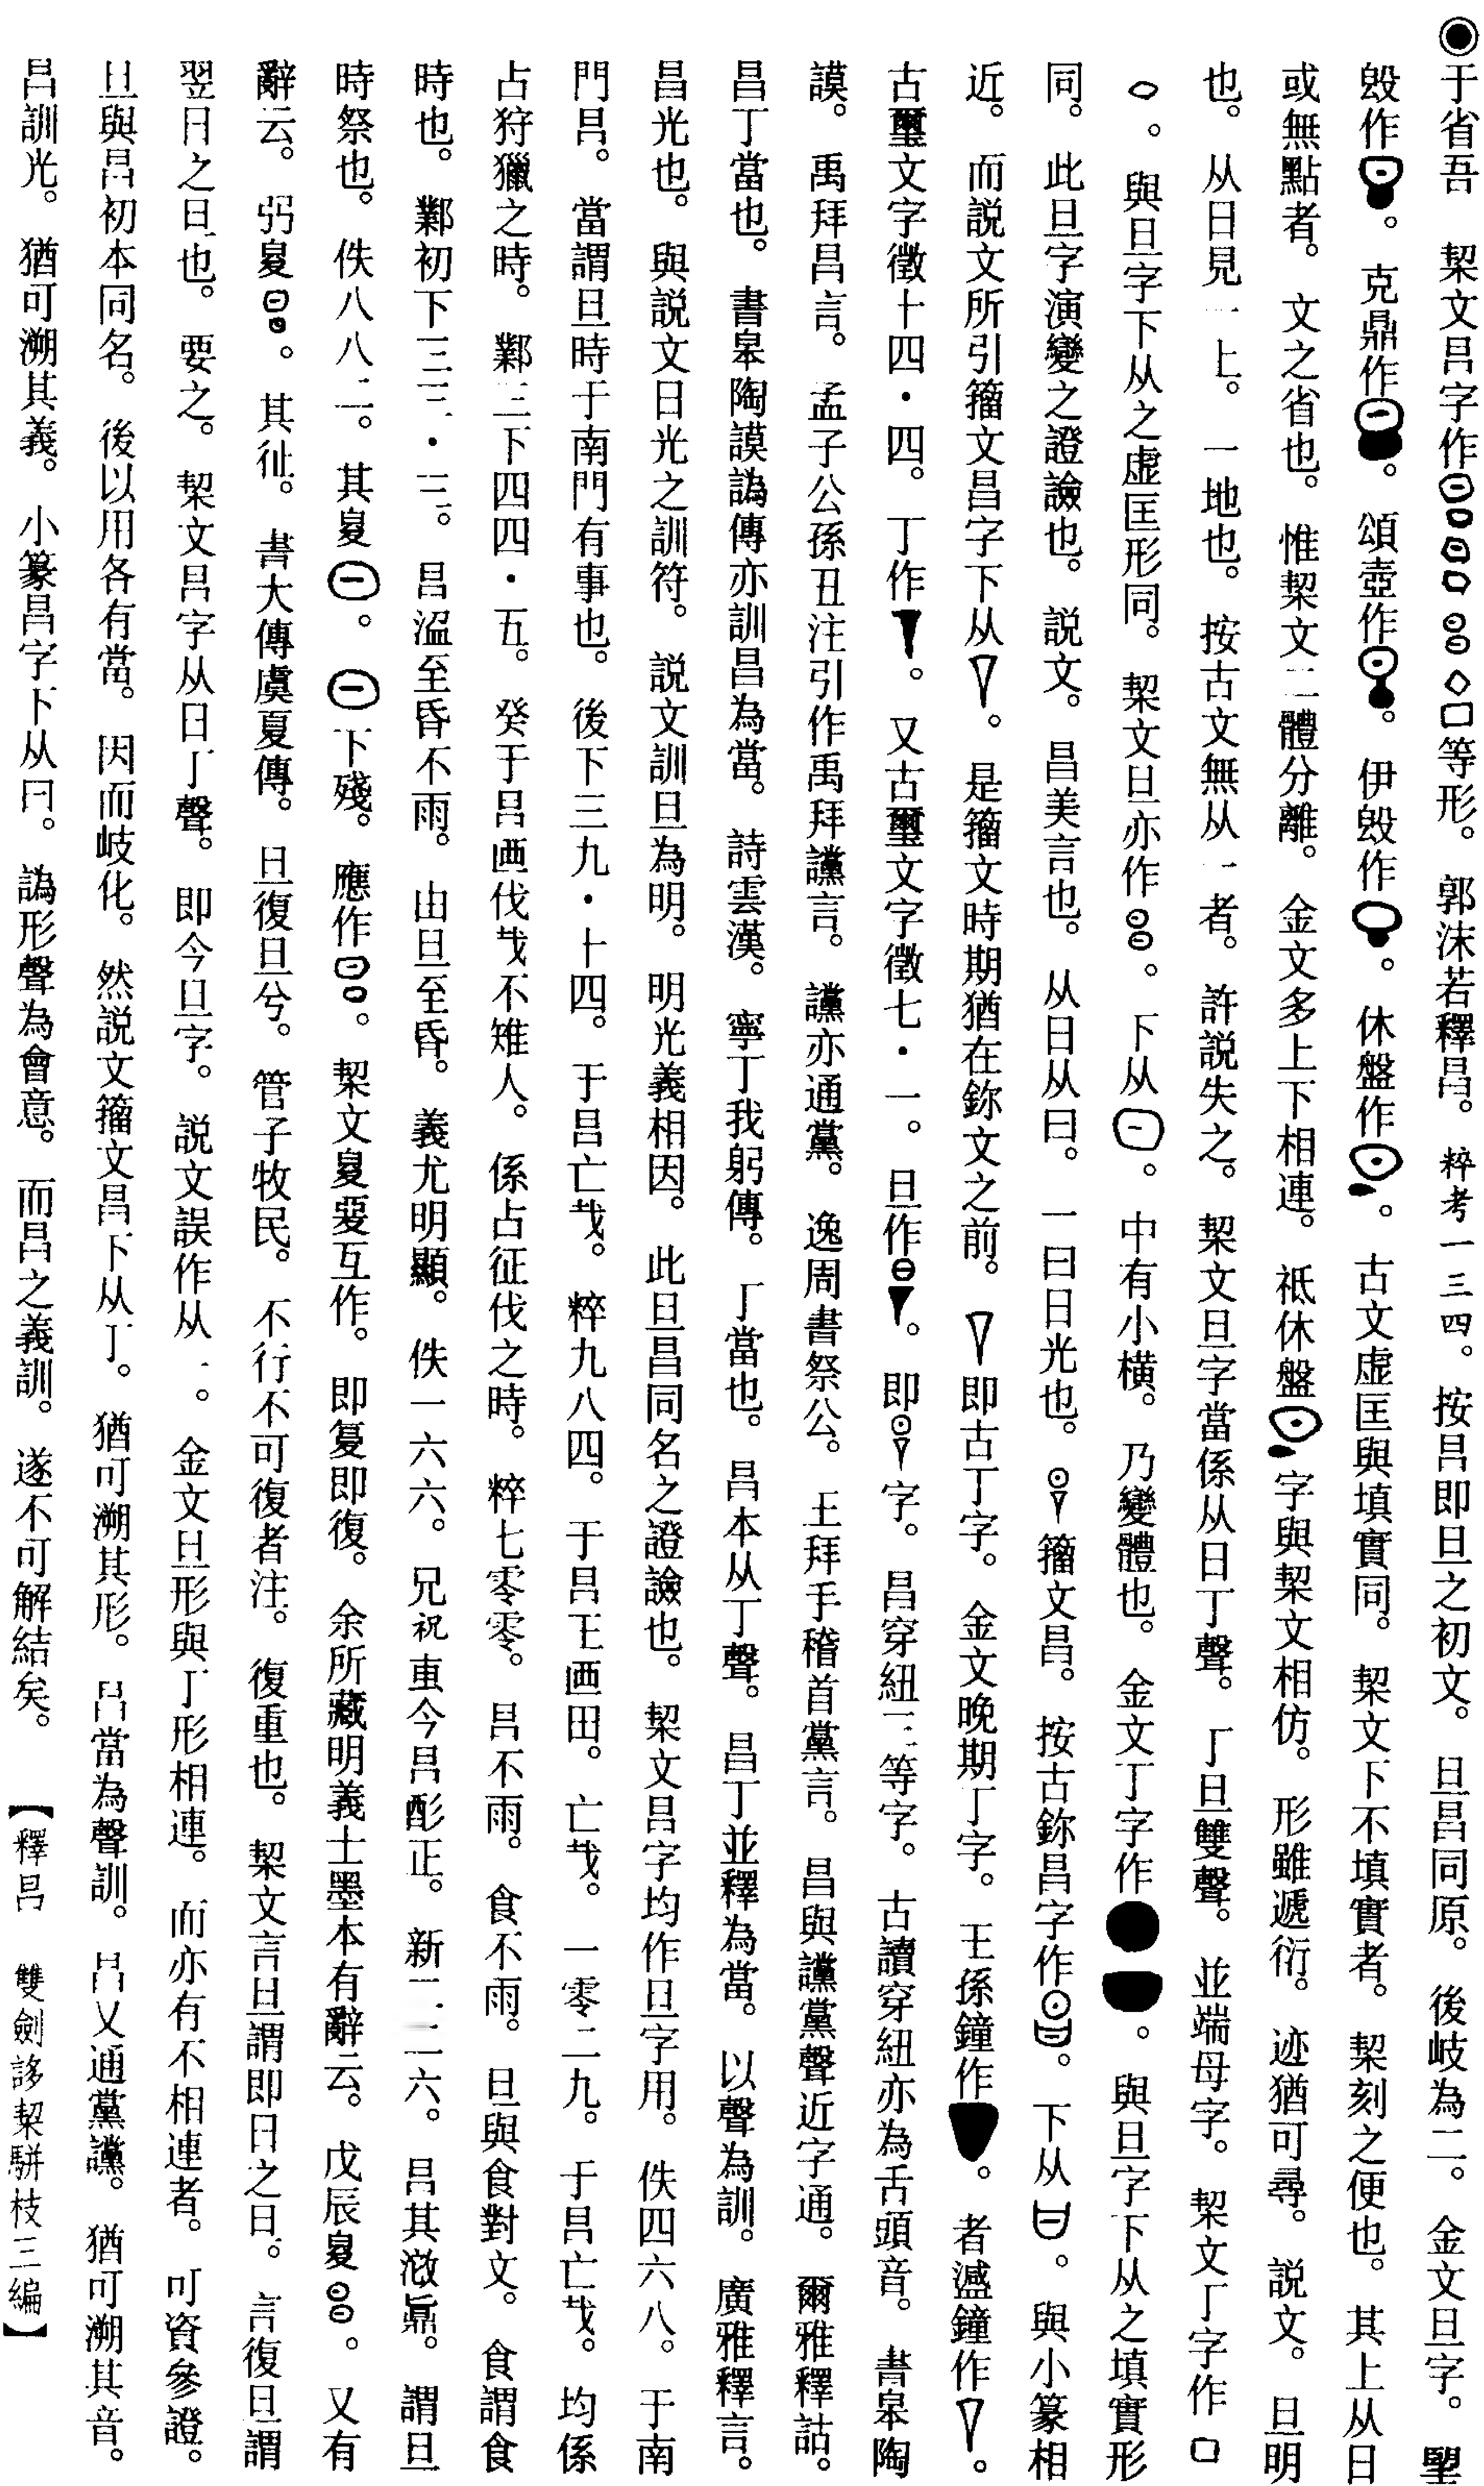 ◉于省吾　栔文㫗字作等形。郭沫若釋昌。粹考一三四。按㫗即旦之初文。旦昌同原。後岐為二。金文旦字。
𣪘作。克鼎作。頌壺作。伊𣪘作。休盤作。古文虛匡與填實同。栔文下不填實者。栔刻之便也。其上从日
或無點者。文之省也。惟栔文二體分離。金文多上下相連。祗休盤字與栔文相仿。形雖遞衍。迹猶可尋。說文。旦明
也。从日見一上。一地也。按古文無从一者。許說失之。栔文旦字當係从日丁聲。丁旦雙聲。並端母字。栔文丁字作口
。與旦字下从之虛匡形同。栔文旦亦作。下从。中有小橫。乃變體也。金文丁字作。與旦字下从之填實形
同。此旦字演變之證諭也。說文。昌美言也。从日从曰。一曰日光也。籀文昌。按古鉨昌字作。下从。與小篆相
近。而說文所引籀文昌字下从。是籀文時期猶在鉨文之前。即古丁字。金文晚期丁字。王孫鐘作。者㵂鐘作。
古璽文字徵十四・四。丁作。又古璽文字徵七・一。旦作。即字。昌穿紐三等字。古讀穿紐亦為舌頭音。書皋陶
謨。禹拜昌言。孟子公孫丑注引作禹拜讜言。讜亦通黨。逸周書祭公。王拜手稽首黨言。昌與讜黨聲近字通。爾雅釋詁。
昌丁當也。書皋陶謨偽傳亦訓昌為當。詩雲漢。寧丁我躬傳。丁當也。昌本从丁聲。昌丁並釋為當。以聲為訓。廣雅釋言。
昌光也。與說文日光之訓符。說文訓旦為明。明光義相因。此旦昌同名之證諭也。栔文昌字均作旦字用。佚四六八。于南
門昌。當謂旦時于南門有事也。後下三九・十四。于昌亡𢦏。粹九八四。于昌王迺田。亡𢦏。一零二九。于昌亡𢦏。均係
占狩獵之時。鄴三下四四・五。癸于昌迺伐𢦏不雉人。係占征伐之時。粹七零零。昌不雨。食不雨。旦與食對文。食謂食
時也。鄴初下三三・三。昌至昏不雨。由旦至昏。義尤明顯。佚一六六。兄祝叀今昌酌正。新二二六。昌其鼎。謂旦
時祭也。佚八八二。其𡕨。下殘。應作。栔文𡕨互作。即复即復。余所藏明義士墨本有辭云。戊辰𡕨。又有
辭云。弜𡕨。其𢓊。書大傳虞夏傳。旦復旦兮。管子牧民。不行不可復者注。復重也。栔文言旦謂即日之日。言復旦謂
翌日之旦也。要之。栔文昌字从日丁聲。即今旦字。說文誤作从一。金文旦形與丁形相連。而亦有不相連者。可資參證。
旦與昌初本同名。後以用各有當。因而岐化。然說文籀文昌下从丁。猶可溯其形。昌當為聲訓。昌又通黨讜。猶可溯其音。
昌訓光。猶可溯其義。小篆昌字下从曰。譌形聲為會意。而昌之義訓。遂不可解結矣。【釋昌　雙劍誃栔駢枝三編】